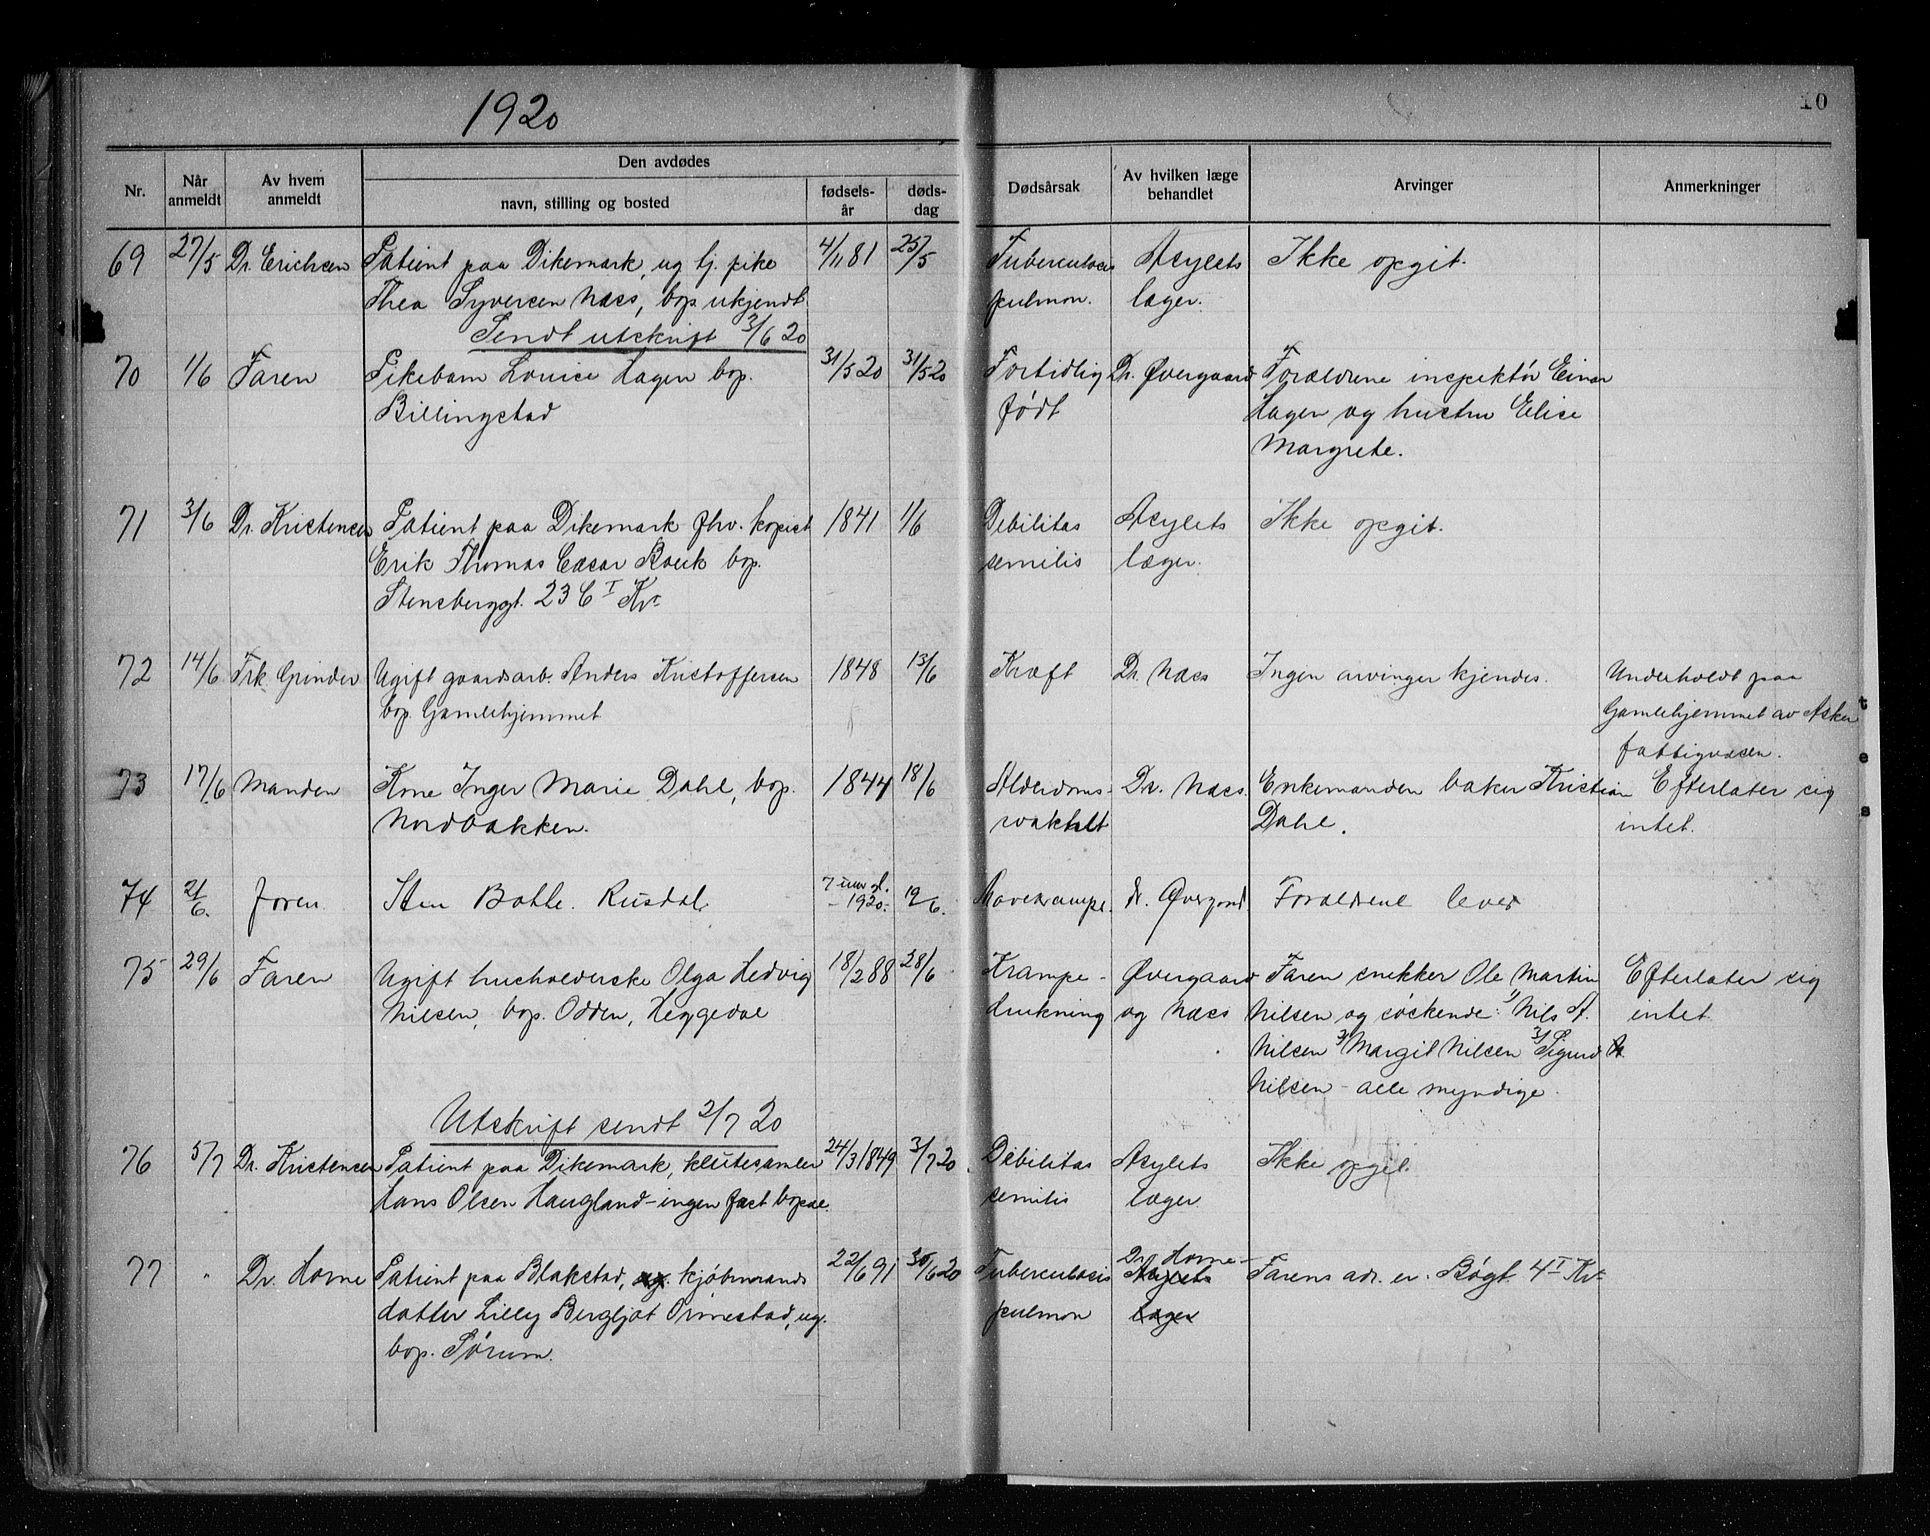 1920
10
Nr.
Når anmeldt
Av hvem anmeldt
Den avdødes
navn, stilling og bosted
fødsels-år
døds-dag
Dødsårsak
Av hvilken læge behandlet
Arvinger
Anmerkninger
69 27/5 Dr. Erichsen Patient paa Dikemark, ug tj. pike 4/11 81 25/5 Tuberculosis Asylets Ikke opgit.
Thea Syversen Næs, bop ukjendt pulmon. læger.
Sendt utskrift 3/6 20
70 1/6 Faren Pikebarn Louise Hagen bop. 31/5 20 31/5 20 Fortidlig Dr. Øvergaard Forældrene inspektör Einar
Billingstad født Hagen og hustru Elise
Margrete.
71 3/6 Dr. Kristensen Patient paa Dikemark fhv. kopist 1841 1/6 Debilitas Asylets Ikke opgit.
Erik Thomas Cæsar Boeck bop. senilis læger.
Stensberggt. 23 C I Kr.
72 14/6 Frk Grinder Ugift gaardsarb. Anders Kristoffersen 1848 13/6 Kræft Dr. Næs Ingen arvinger kjendes. Underholdt paa
bop. Gamlehjemmet Gamlehjemmet av Asker
fattigvæsen.
73 17/6 Manden Kone Inger Marie Dahl, bop. 1844 18/6 Alderdoms- Dr. Næs. Enkemanden baker Kristian Efterlater sig
Nordbakken. svakhet Dahl. intet.
74 21/6. Faren Sten Bøhle. Rusdal. 7 uur gl. - 1920. 19/6. Mavekrampe. dr. Øvergaard. Forældrene lever
75 29/6 Faren Ugift husholderske Olga Hedvig 18/2 88 28/6 Krampe- Øvergaard Faren snekker Ole Martin Efterlater sig
Nilsen, bop. Odden, Heggedal drukning og Næs Nilsen og söskende: 1/ Nils A. intet.
Nilsen 2/ Margit Nilsen 3/ Sigurd
Nilsen - alle myndige.
Utskrift sendt 2/7 20
76 5/7 Dr. Kristensen Patient paa Dikemark, klutesamler 24/3 1849 3/7 20. Debilitas Asylets Ikke opgit.
Hans Olsen Haugland - ingen fast bopæl. senilis læger
77 " Dr. Horne Patient paa Blakstad, ug. kjöbmands 22/6 91 30/6 20 Tuberculosis Dr. Horne Asylets Farens adr. er. Bögt 4 I Kr.
datter Lilly Bergljot Ormestad, ug. pulmon læger
bop. Sörum.